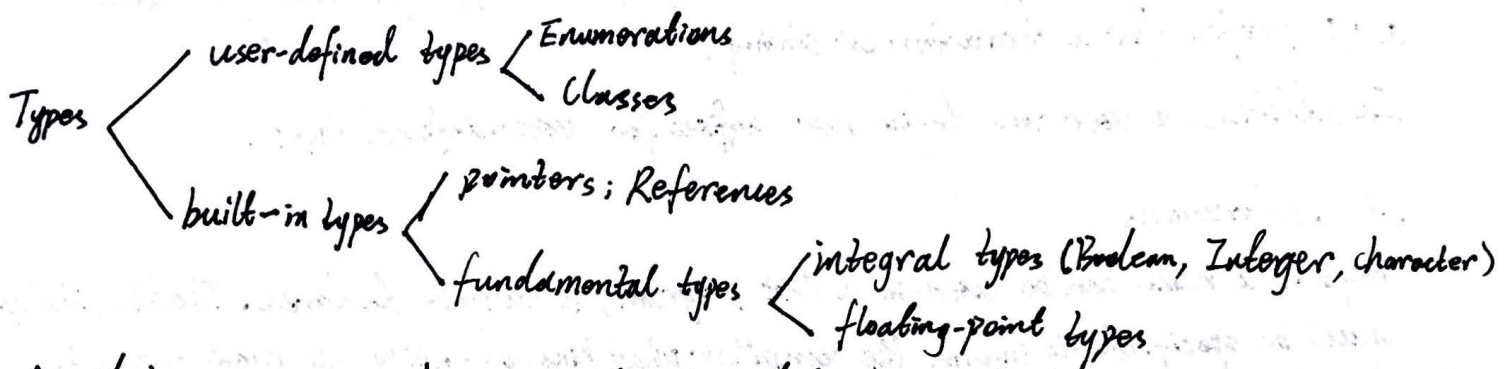 user-defined types
Enumerations
Classes
Types
built-in types
pointers; References
fundamental types
integral types (Boolean, Integer, character)
floating-point types